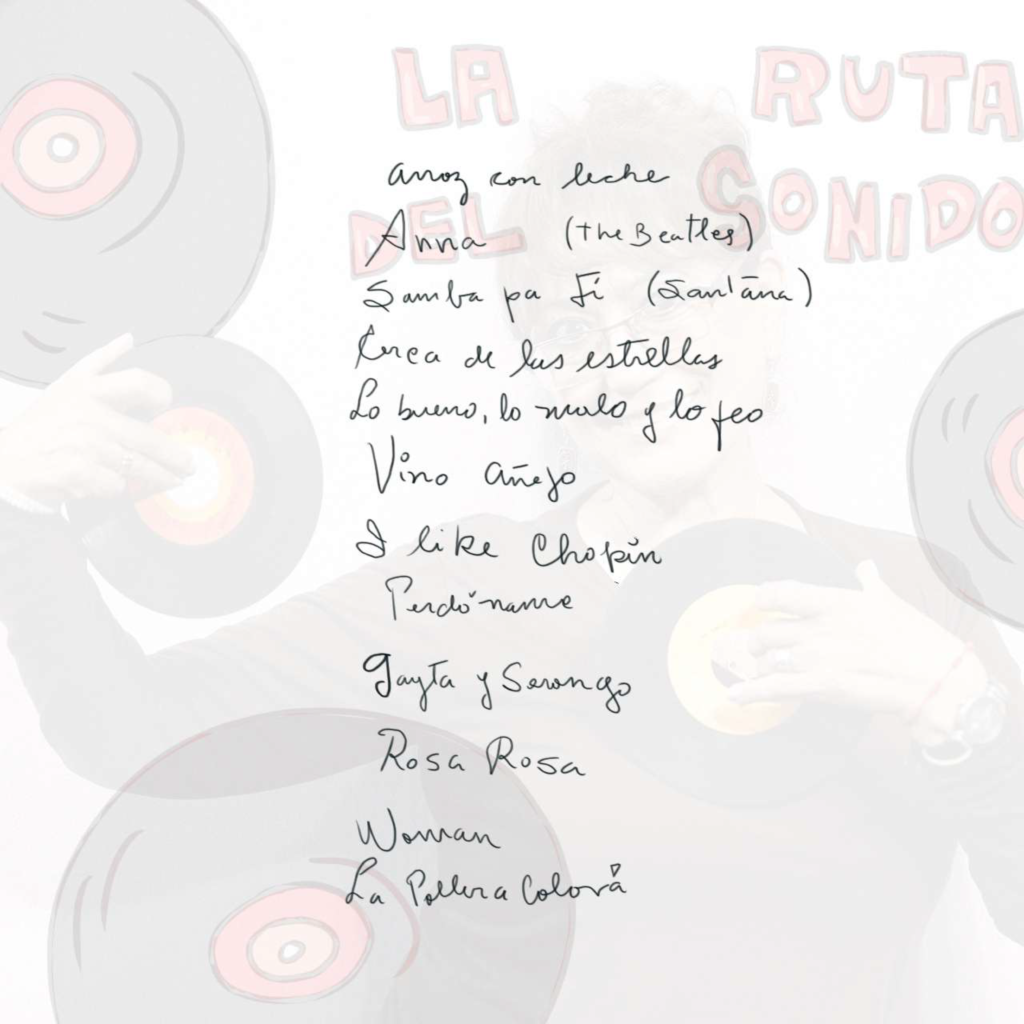 LA RUTA
DEL SONIDO
arroz con leche
Anna (The Beatles)
Samba pa Ti (Santana)
Cerca de las estrellas
Lo bueno, lo malo y lo feo
Vino añejo
I like Chopin
Perdóname
gayta y
Rosa Rosa
Woman
La Pollera Colorá